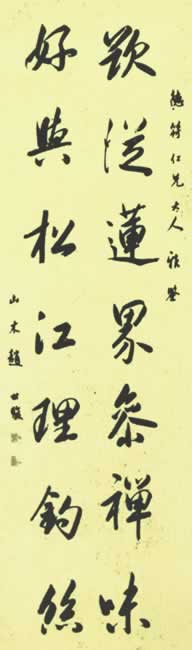 德符仁兄大人 雅鑒
欲從蓮界參禪味
好與松江理釣絲
山木趙世駿